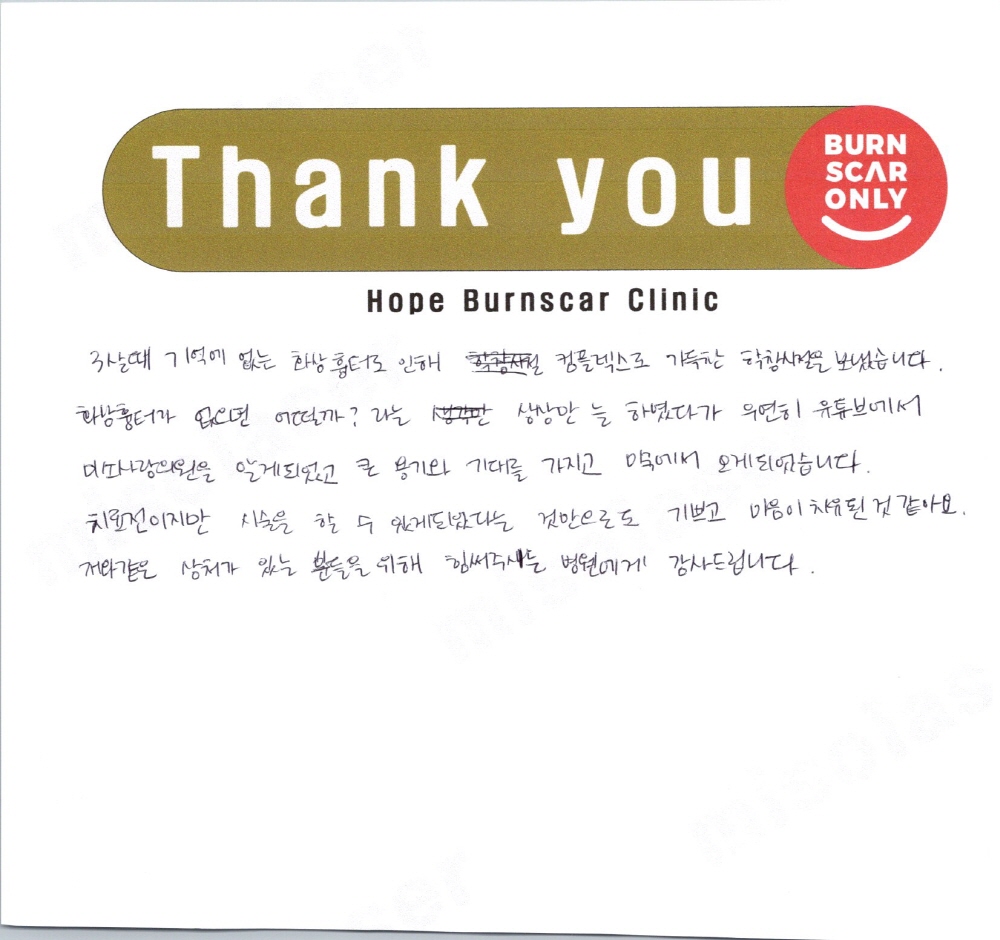 Thank you
BURN
SCAR
ONLY
Hope Burnscar Clinic
3살때 기억에 없는 화상흉터로 인해 학창시절 컴플렉스로 가득찬 학창시절을 보냈습니다.
화상흉터가 없으면 어떨까? 라는 생각만 상상만 늘 하였다가 우연히 유튜브에서
미소사랑의원을 알게되었고 큰 용기와 기대를 가지고 미국에서 오게되었습니다.
치료전이지만 시술을 할 수 있게되었다는 것만으로도 기쁘고 마음이 치유된 것 같아요.
저와같은 상처가 있는 분들을 위해 힘써주시는 병원에게 감사드립니다.